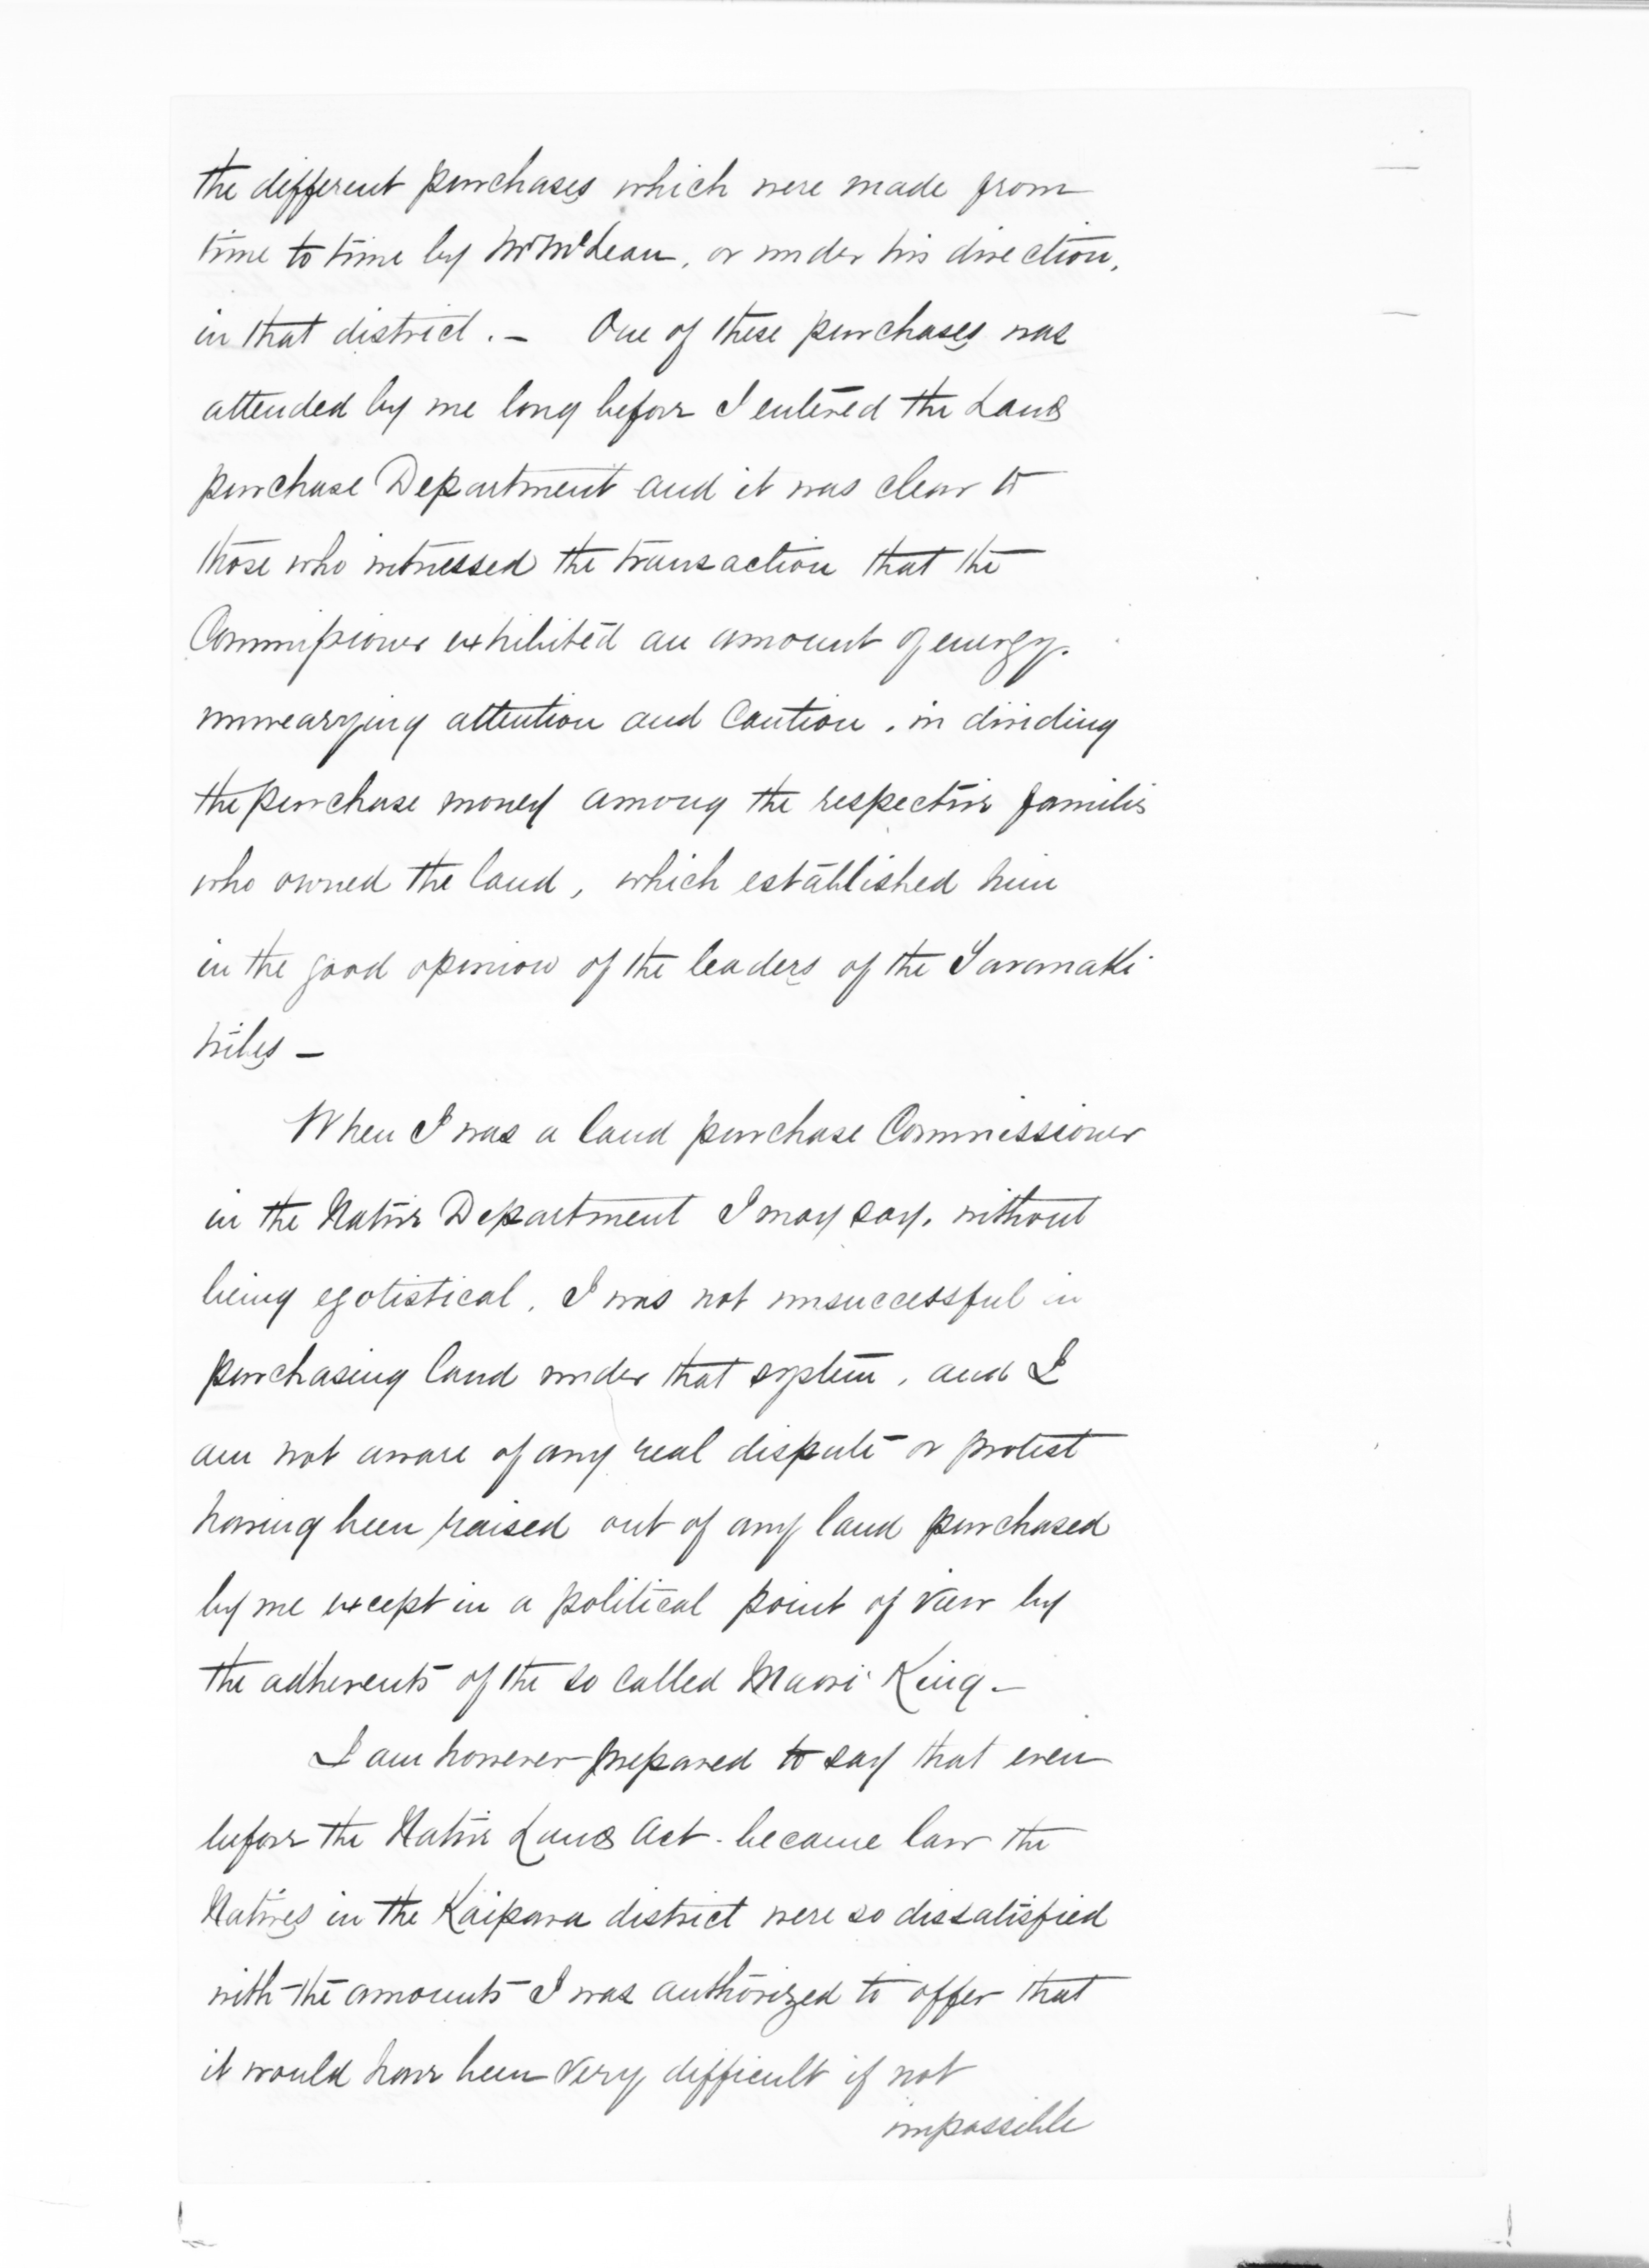 the different purchases which were made from
time to time by Mr McLean, or under his direction,
in that district. – One of these purchases was
attended by me long before I entered the Land
purchase Department and it was clear to
those who witnessed the transaction that the
Commissioner exhibited an amount of energy,
unwearying attention and Caution, in dividing
the purchase money among the respective families
who owned the land, which established him
in the good opinion of the leaders of the Taranaki
tribes –
When I was a land purchase Commissioner
in the Native Department I may say, without
being egotistical, I was not unsuccessful in
purchasing land under that system, and I
am not aware of any real dispute or protest
having been raised out of any land purchased
by me except in a political point of view by
the adherents of the so called Maori King –
I am however prepared to say that even
before the Native Lands Act became law the
Natives in the Kaipara district were so dissatisfied
with the amounts I was authorized to offer that
it would have been very difficult if not
impossible